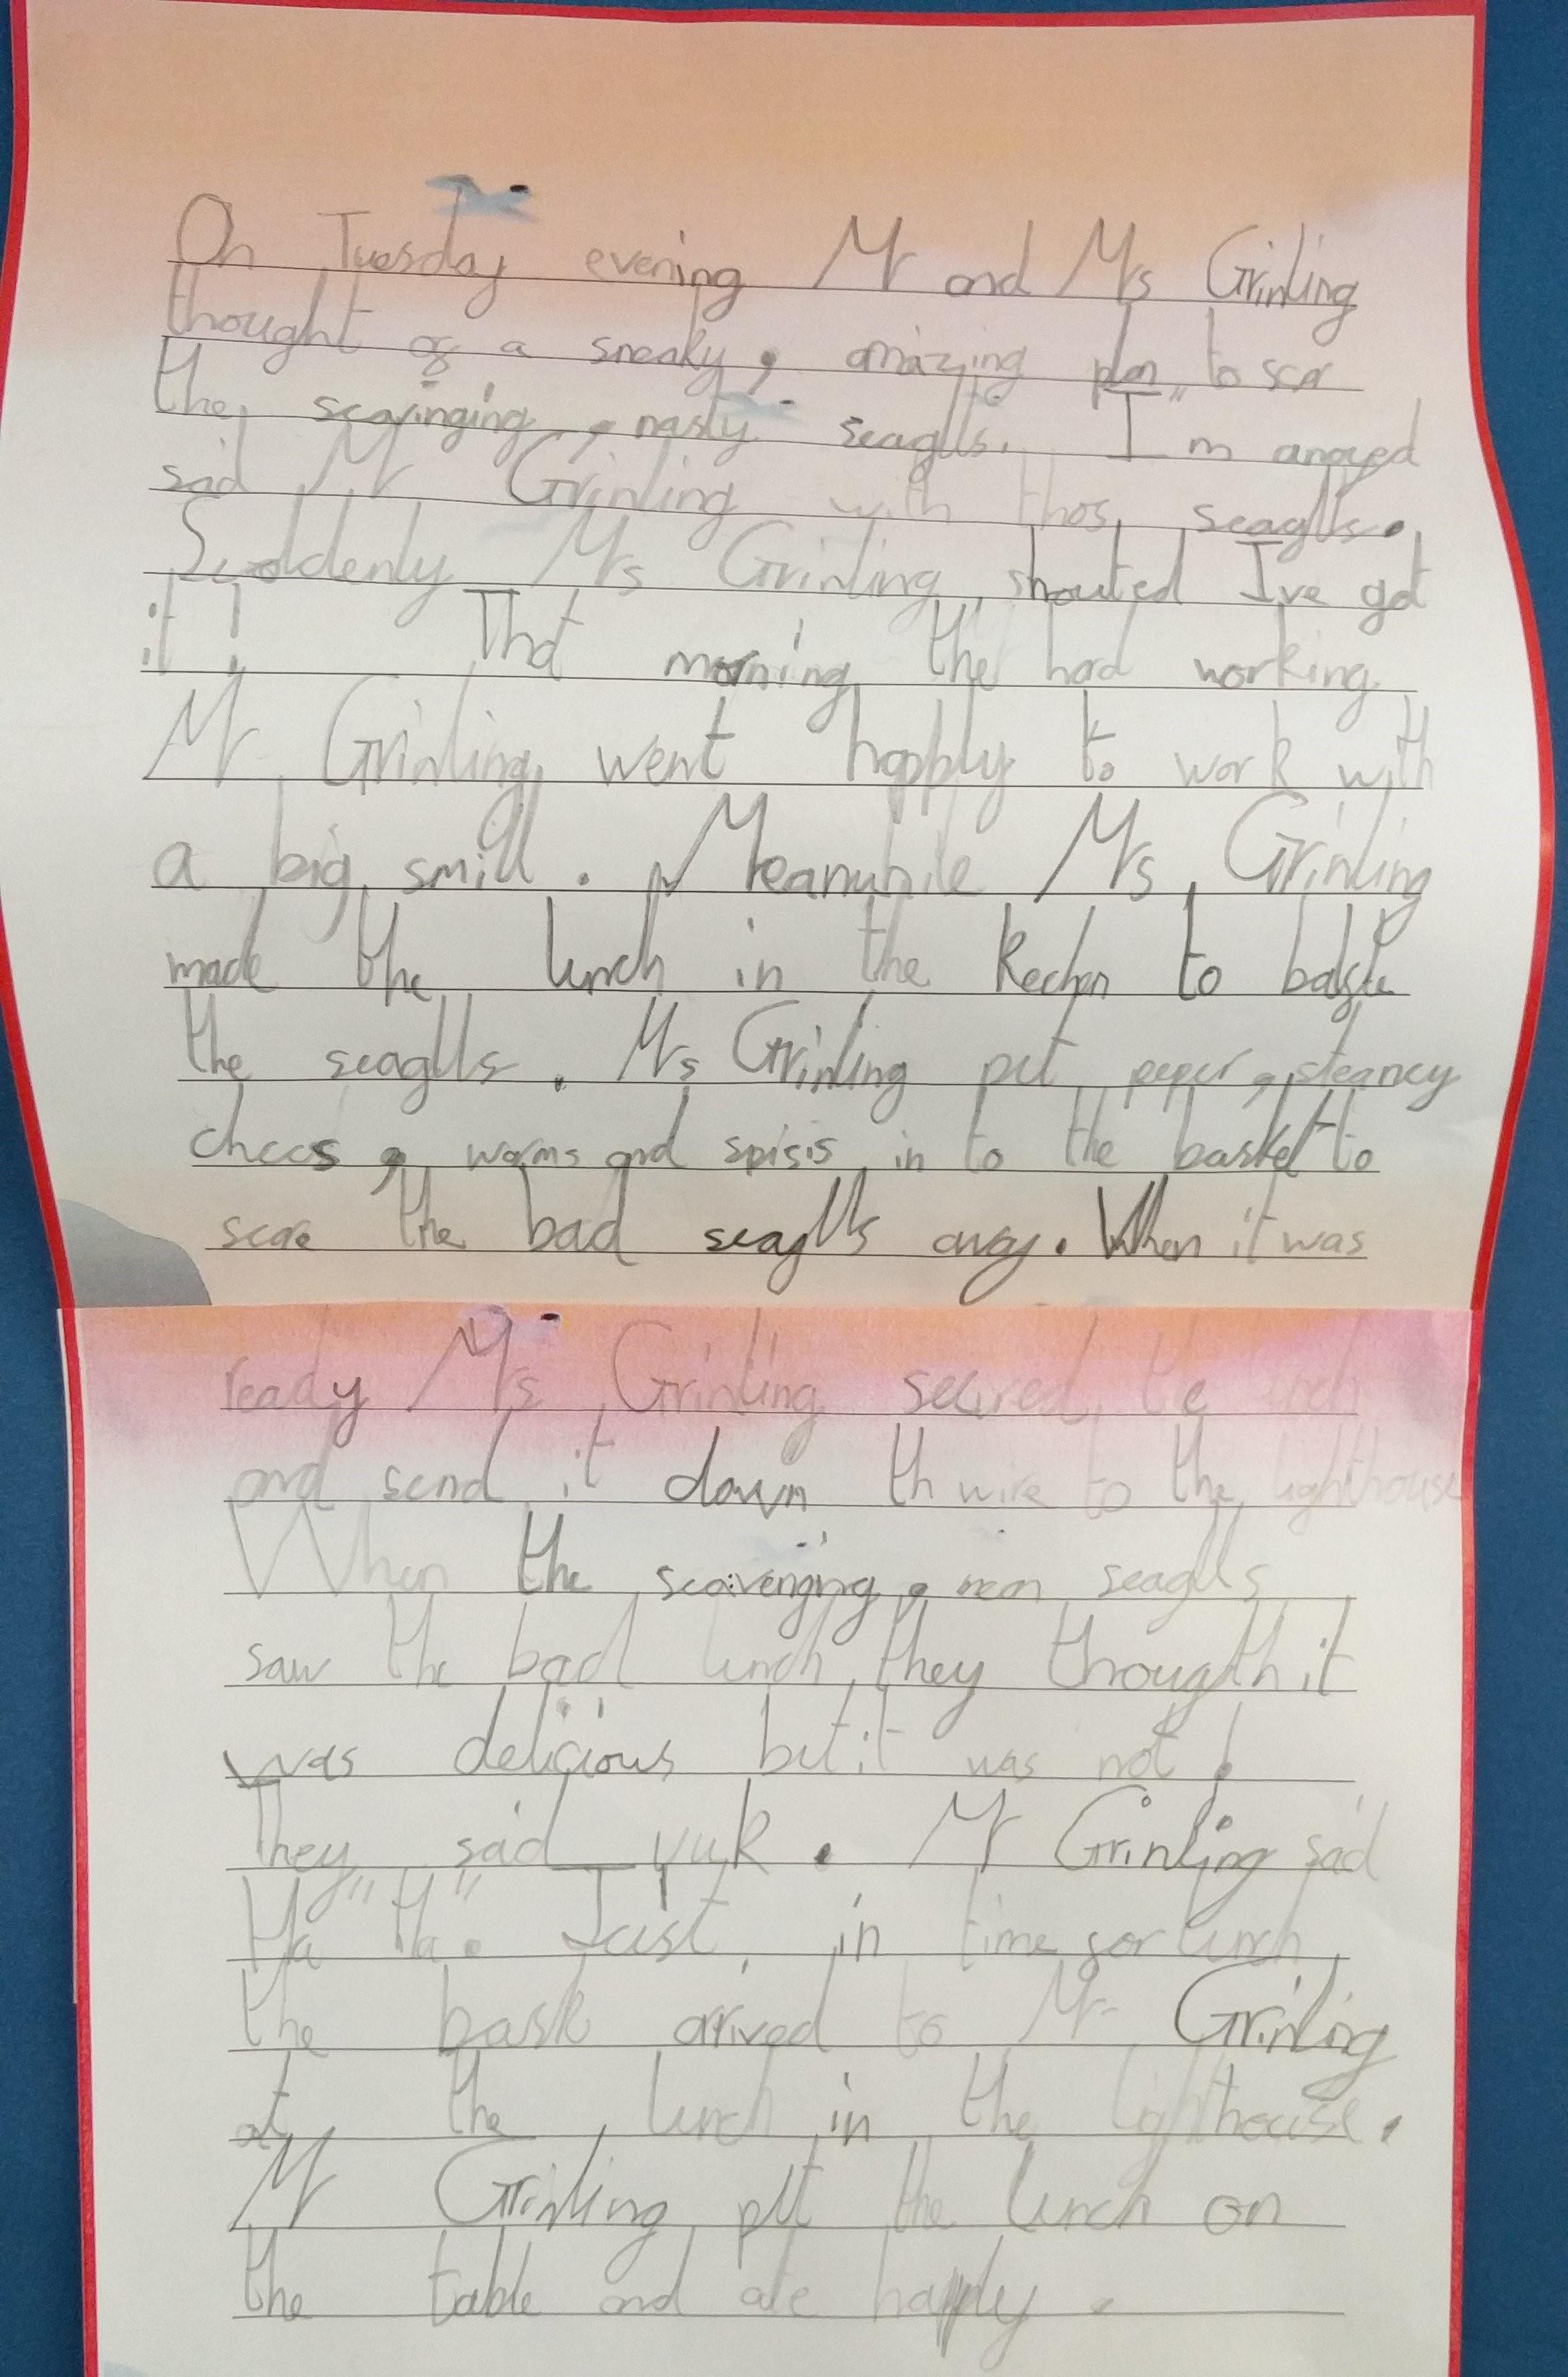 On Tuesday evening Mr and Mrs Grinling
thought of a sneaky, amazing plan to scar
the scavinging, nasty seaglls. "I'm anoyed
said Mr Grinling with thos seaglls.
Suddenly Mrs Grinling shouted I've got
it! That morning the hard working
Mr Grinling went happly to work with
a big smill. Meanwhile Mrs Grinling
made the lunch in the kechen to
the seaglls. Mrs Grinling put peper, steancy
chees, worms and spisis in to the basket to
scare the bad seaglls away. When it was
ready Mrs Grinling secured the lunch
and send it down th wire to the lighthouse
When the scavenging, mean seaglls
saw the bad lunch they thougth it
was delicious but it was not!
They said yuk. Mr Grinling said
Ha "Ha". Just in time for lunch
the bask arrived to Mr Grinling
at the lunch in the lighthouse.
Mr Grinling put the lunch on
the table and ate happly.